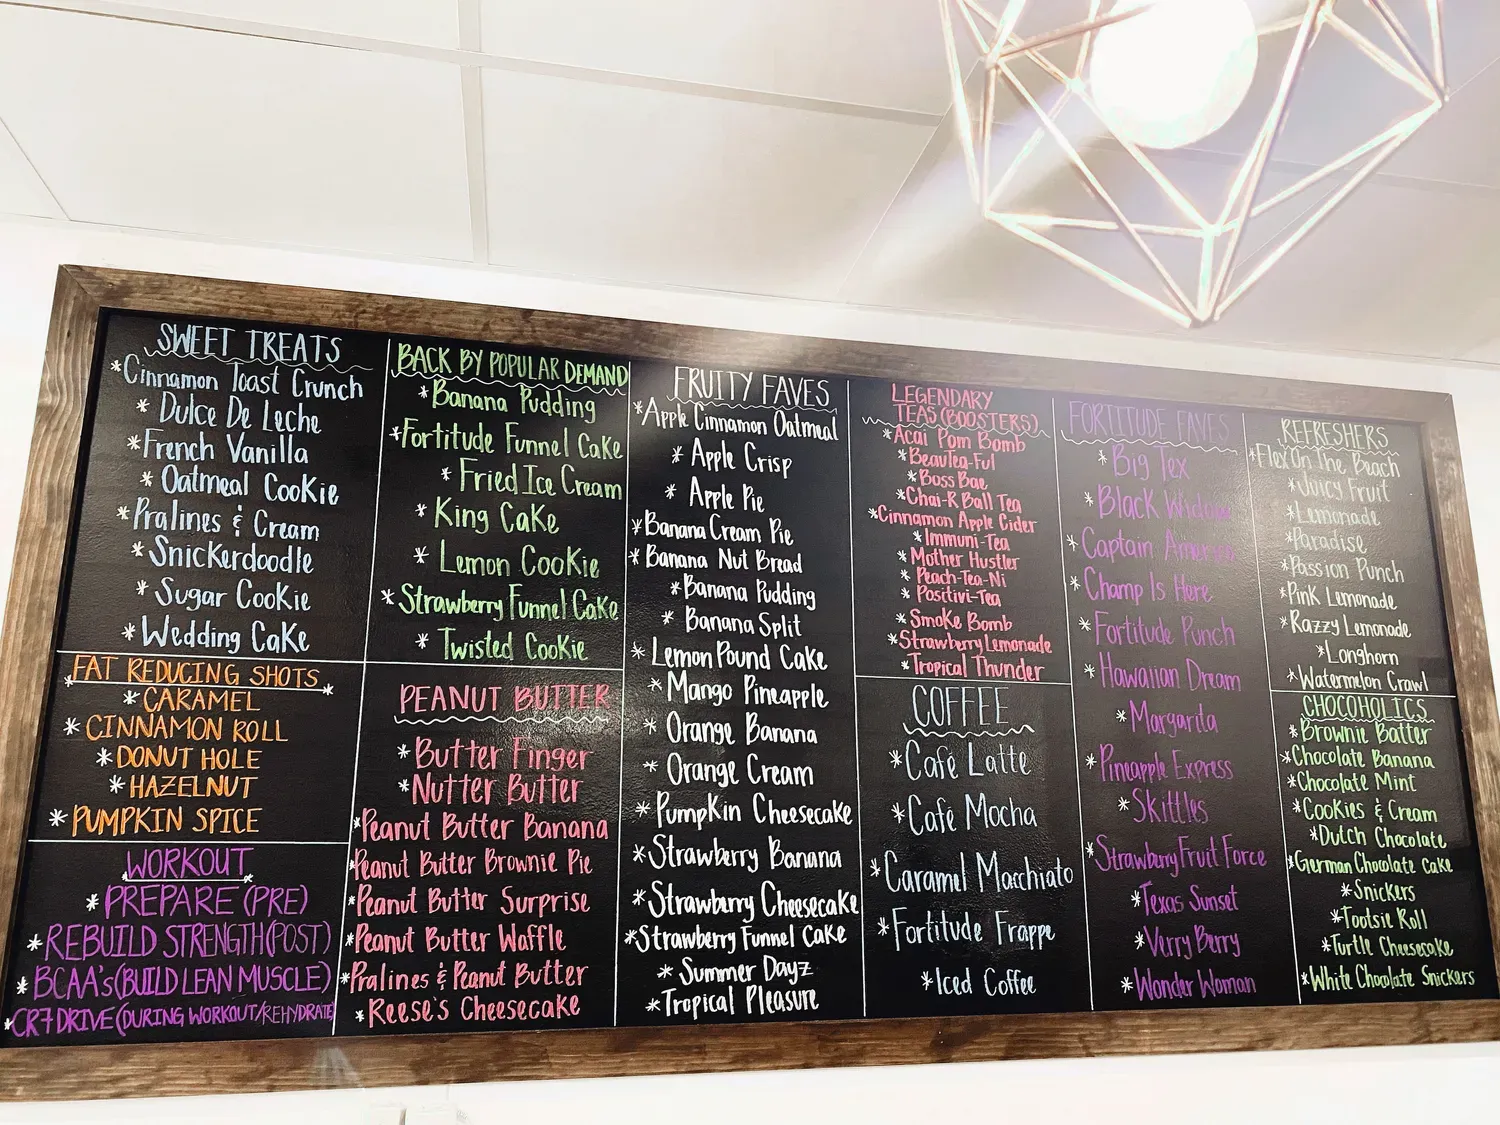 SWEET TREATS
*Cinnamon Toast Crunch
* Dulce De Leche
*French Vanilla
* Oatmeal Cookie
*Pralines & Cream
*Snickerdoodle
* Sugar Cookie
*Wedding Cake
*FAT REDUCING SHOTS*
*CARAMEL
* CINNAMON ROLL
*DONUT HOLE
*HAZELNUT
*PUMPKIN SPICE
*WORKOUT*
* PREPARE (PRE)
*REBUILD STRENGTH(POST)
*BCAA's(BUILD LEAN MUSCLE)
*CR7 DRIVE(DURING WORKOUT/REHYDRATE)
BACK BY POPULAR DEMAND
*Banana Pudding
*Fortitude Funnel Cake
* Fried Ice Cream
* King Cake
* Lemon Cookie
*Strawberry Funnel Cake
* Twisted Cookie
PEANUT BUTTER
*Butter Finger
*Nutter Butter
*Peanut Butter Banana
*Peanut Butter Brownie Pie
*Peanut Butter Surprise
*Peanut Butter Waffle
*Pralines & Peanut Butter
*Reese's Cheesecake
FRUITY FAVES
*Apple Cinnamon Oatmeal
* Apple Crisp
* Apple Pie
*Banana Cream Pie
*Banana Nut Bread
*Banana Pudding
* Banana Split
*Lemon Pound Cake
*Mango Pineapple
* Orange Banana
* Orange Cream
*Pumpkin Cheesecake
*Strawberry Banana
*Strawberry Cheesecake
*Strawberry Funnel Cake
* Summer Dayz
*Tropical Pleasure
LEGENDARY
TEAS(BOOSTERS)
*Acai Pom Bomb
*BeauTea-Ful
*Boss Bae
*Chai-R Ball Tea
*Cinnamon Apple Cider
*Immuni-Tea
*Mother Hustler
* Peach-Tea-Ni
* Positivi-Tea
* Smoke Bomb
*Strawberry Lemonade
*Tropical Thunder
COFFEE
*Café Latte
*Café Mocha
*Caramel Macchiato
*Fortitude Frappe
*Iced Coffee
FORTITUDE FAVES
* Big Tex
* Black Widow
*Captain America
*Champ Is Here
*Fortitude Punch
* Hawaiian Dream
*Margarita
*Pineapple Express
*Skittles
*Strawberry Fruit Force
*Texas Sunset
*Verry Berry
*Wonder Woman
REFRESHERS
*Flex On The Beach
*Juicy Fruit
*Lemonade
*Paradise
*Passion Punch
*Pink Lemonade
*Razzy Lemonade
*Longhorn
*Watermelon Crawl
CHOCOHOLICS
*Brownie Batter
*Chocolate Banana
*Chocolate Mint
*Cookies & Cream
*Dutch Chocolate
*German Chocolate Cake
*Snickers
*Tootsie Roll
*Turtle Cheesecake
*White Chocolate Snickers